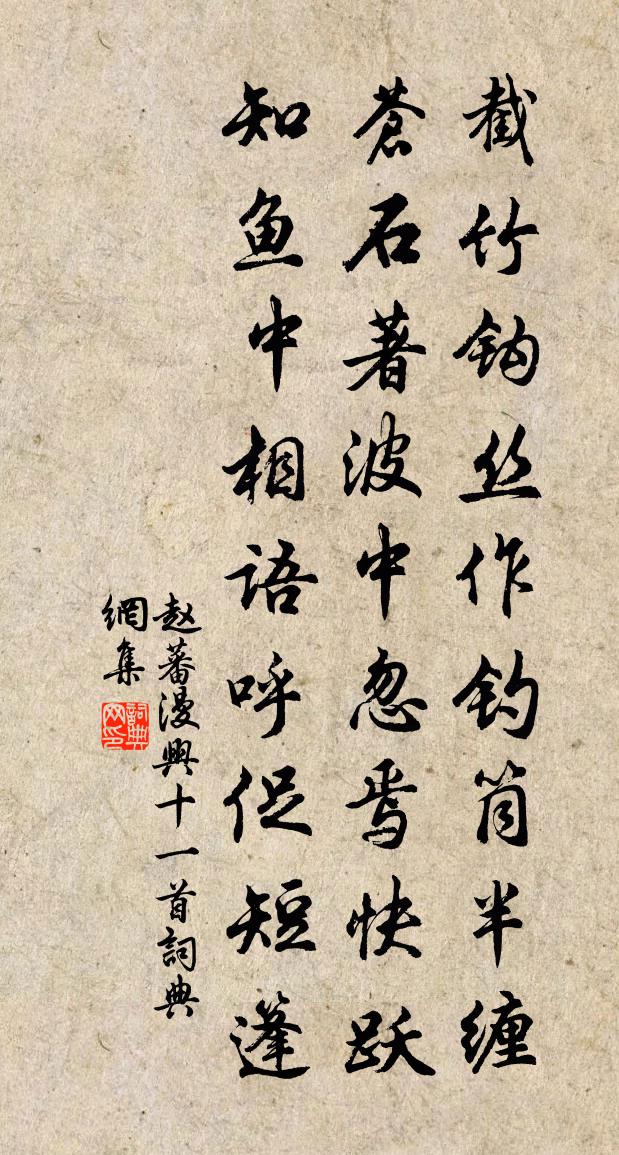 截竹钩丝作钓筒半缠
苍石著波中忽焉快跃
知鱼中相语呼促短蓬
赵蕃漫興十一首詞典
網集
詞典
网印